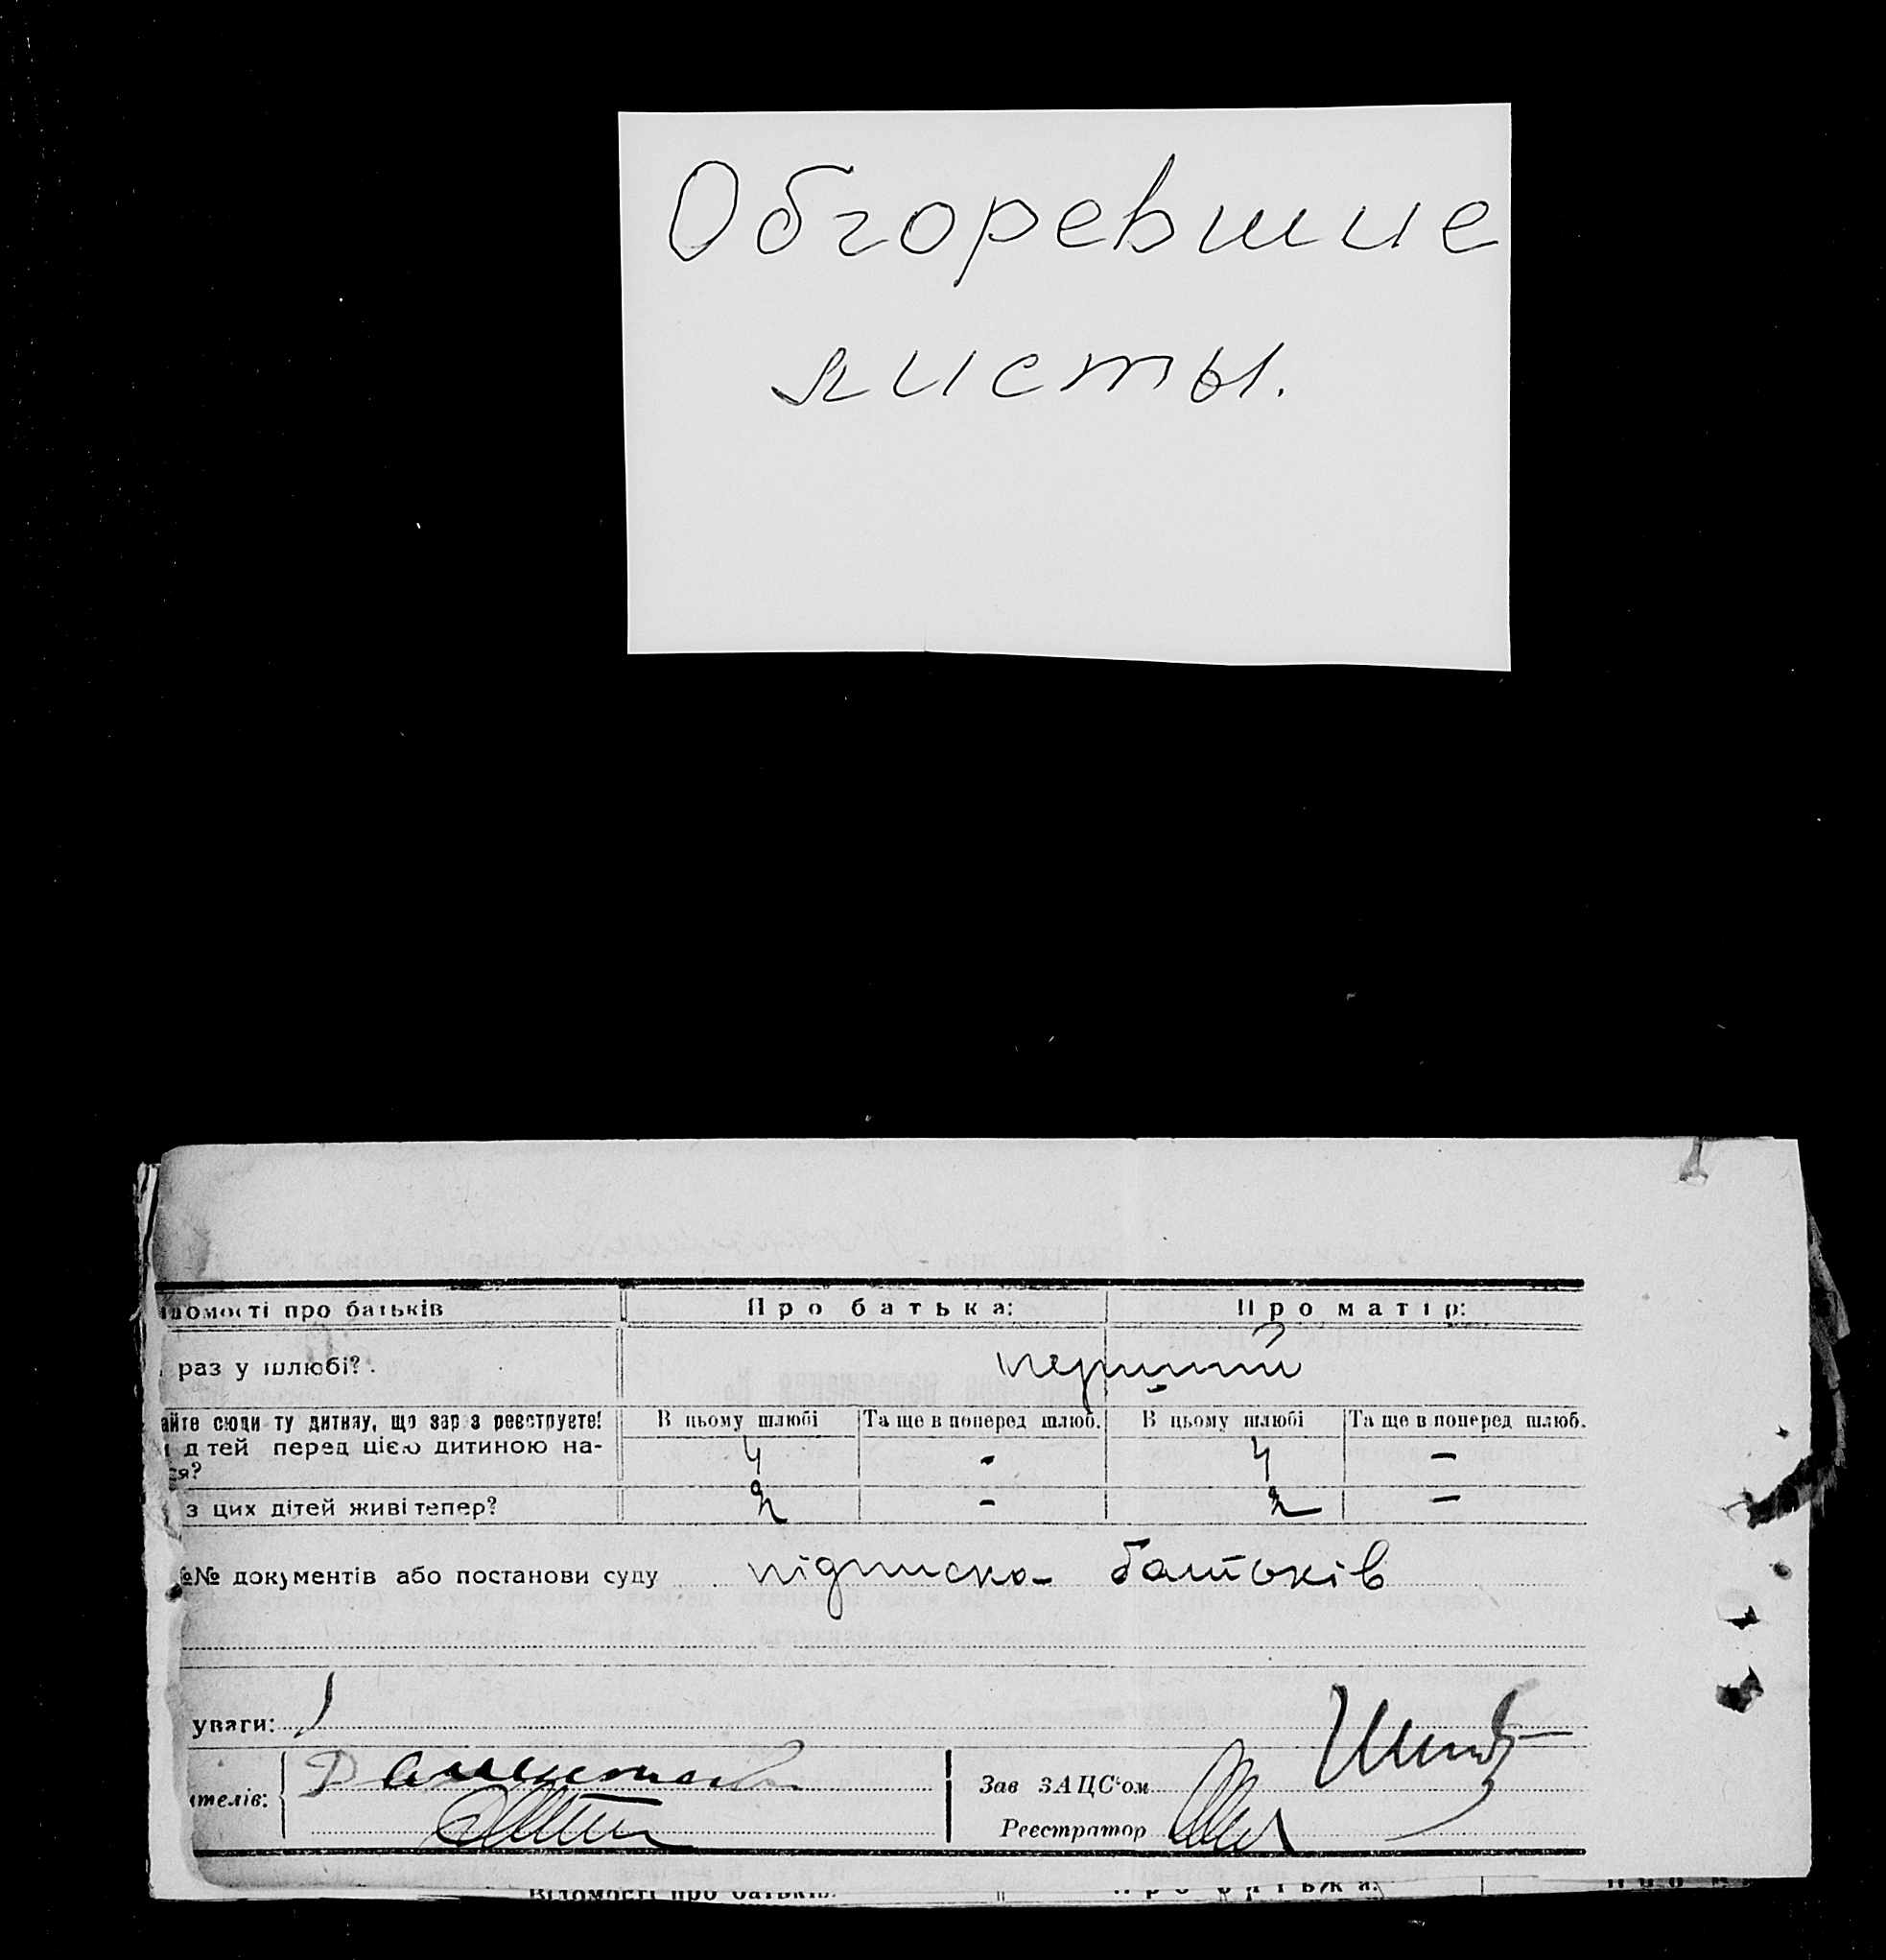 Обгоревшие
листы.
ідомості про батьків Про батька: Про матір:
раз у шлюбі? перший
айте сюди ту дитину, що зар з реєструєте! В цьому шлюбі Та ще в поперед шлюб. В цьому шлюбі Та ще в поперед шлюб.
д тей перед цією дитиною на- 4 - 4 -
ся?
з цих дітей живі тепер? 2 - 2 -
№№ документів або постанови суду підписка батьків
уваги:
ителів:
Зав ЗАЦС'ом
Реєстратор
Відомості про батьків: Про батька: